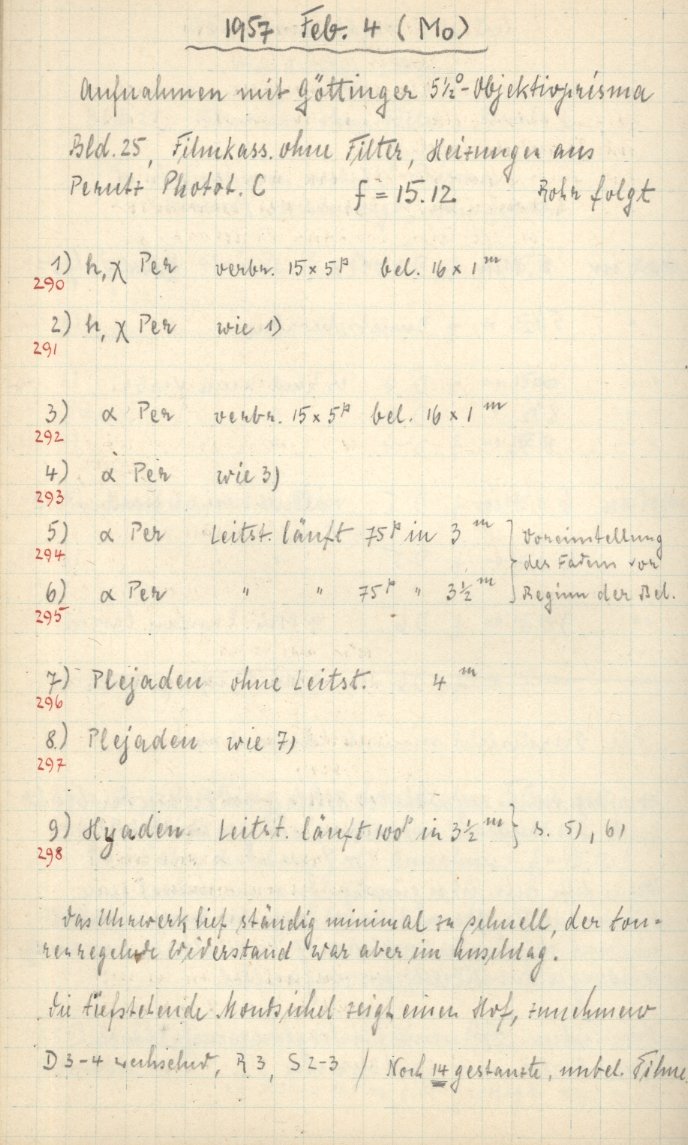 1957 Feb. 4 (Mo)
Aufnahmen mit Göttinger 5½°-Objektivprisma
Bld. 25, Filmkass. ohne Filter, Heizungen aus
Perutz Photot. C f = 15.12. Rohr folgt
1) h, χ Per verbr. 15 x 5ᵖ bel. 16 x 1ᵐ
290
2) h, χ Per wie 1)
291
3) α Per verbr. 15 x 5ᵖ bel. 16 x 1ᵐ
292
4) α Per wie 3)
293
5) α Per Leitst. läuft 75ᵖ in 3ᵐ } Voreinstellung
294 des Fadens vor
6) α Per " " 75ᵖ " 3½ᵐ } Beginn der Bel.
295
7) Plejaden ohne Leitst. 4ᵐ
296
8) Plejaden wie 7)
297
9) Hyaden Leitst. läuft 100ᵖ in 3½ᵐ } s. 5), 6)
298
Das Uhrwerk lief ständig minimal zu schnell, der tou-
renregelnde Widerstand war aber im Anschlag.
Die tiefstehende Mondsichel zeigt einen Hof, zunehmend
D 3-4 wechselnd, R 3, S 2-3 / Noch 14 gestanzte, unbel. Filme